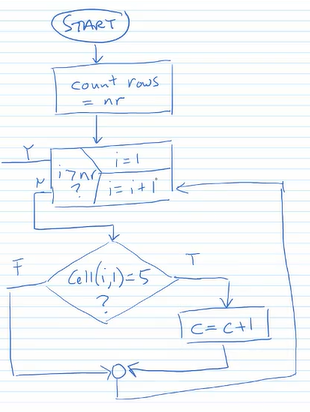 START
count rows
= nr
Y
i>nr
?
i=1
i=i+1
N
Cell(i,1)=5
?
F
T
c=c+1